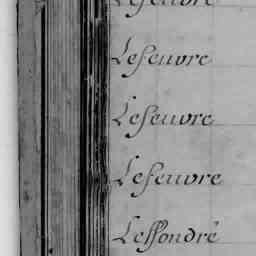 Lefeuvre
Lefeuvre
Lefeuvre
Lefeuvre
Leffondré